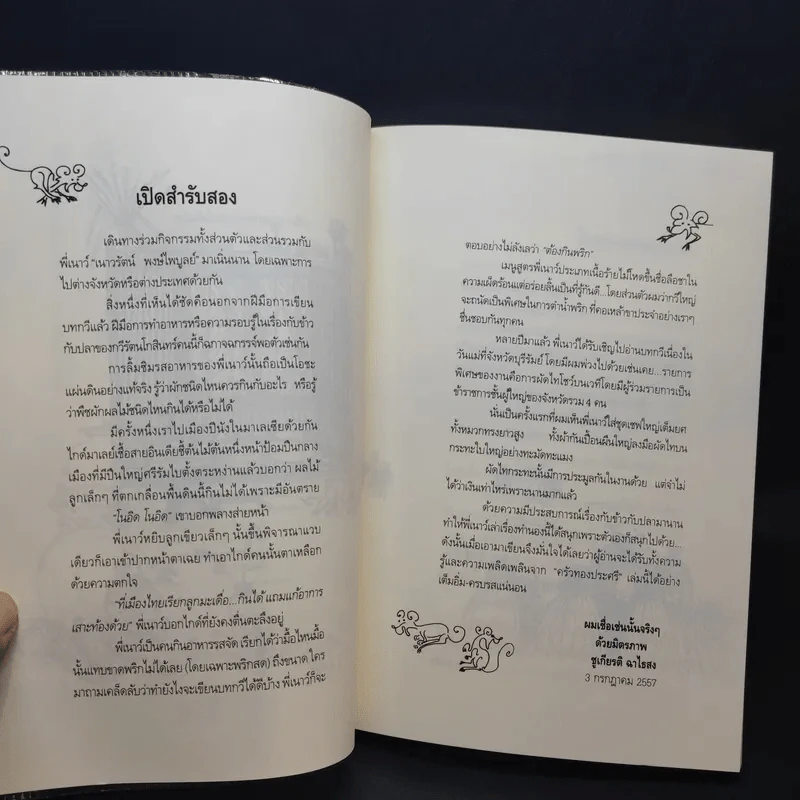 เปิดสำรับสอง
เดินทางร่วมกิจกรรมทั้งส่วนตัวและส่วนรวมกับ
พี่เนาว์ "เนาวรัตน์ พงษ์ไพบูลย์" มาเนิ่นนาน โดยเฉพาะการ
ไปต่างจังหวัดหรือต่างประเทศด้วยกัน
สิ่งหนึ่งที่เห็นได้ชัดคือนอกจากฝีมือการเขียน
บทกวีแล้ว ฝีมือการทำอาหารหรือความรอบรู้ในเรื่องกับข้าว
กับปลาของกวีรัตนโกสินทร์คนนี้ก็ฉกาจฉกรรจ์พอตัวเช่นกัน
การลิ้มชิมรสอาหารของพี่เนาว์นั้นถือเป็นโอชะ
แผ่นดินอย่างแท้จริง รู้ว่าผักชนิดไหนควรกินกับอะไร หรือรู้
ว่าพืชผักผลไม้ชนิดไหนกินได้หรือไม่ได้
มีครั้งหนึ่งเราไปเมืองปีนังในมาเลเซียด้วยกัน
ไกด์มาเลย์เชื้อสายอินเดียชี้ต้นไม้ต้นหนึ่งหน้าป้อมปืนกลาง
เมืองที่มีปืนใหญ่ศรีรัมไบตั้งตระหง่านแล้วบอกว่า ผลไม้
ลูกเล็กๆ ที่ตกเกลื่อนพื้นดินนี้กินไม่ได้เพราะมีอันตราย
"โนอีด โนอีด" เขาบอกพลางส่ายหน้า
พี่เนาว์หยิบลูกเขียวเล็กๆ นั้นขึ้นพิจารณาแวบ
เดียวก็เอาเข้าปากหน้าตาเฉย ทำเอาไกด์คนนั้นตาเหลือก
ด้วยความตกใจ
"ที่เมืองไทยเรียกลูกมะเดื่อ...กินได้ แถมแก้อาการ
เสาะท้องด้วย" พี่เนาว์บอกไกด์ที่ยังคงตื่นตะลึงอยู่
พี่เนาว์เป็นคนกินอาหารรสจัด เรียกได้ว่ามื้อไหนมื้อ
นั้นแทบขาดพริกไม่ได้เลย (โดยเฉพาะพริกสด) ถึงขนาด ใคร
มาถามเคล็ดลับว่าทำยังไงจะเขียนบทกวีได้ดีบ้าง พี่เนาว์ก็จะ
ตอบอย่างไม่ลังเลว่า "ต้องกินพริก"
เมนูสูตรพี่เนาว์ประเภทเนื้อร้ายไม่โหดขึ้นชื่อลือชาใน
ความเผ็ดร้อนแต่อร่อยลิ้นเป็นที่รู้กันดี...โดยส่วนตัวผมว่ากวีใหญ่
จะถนัดเป็นพิเศษในการตำน้ำพริก ที่คอเหล้าขาประจำอย่างเราๆ
ชื่นชอบกันทุกคน
หลายปีมาแล้ว พี่เนาว์ได้รับเชิญไปอ่านบทกวีเนื่องใน
วันแม่ที่จังหวัดบุรีรัมย์ โดยมีผมพ่วงไปด้วยเช่นเคย...รายการ
พิเศษของงานคือการผัดไทโชว์บนเวทีโดยมีผู้ร่วมรายการเป็น
ข้าราชการชั้นผู้ใหญ่ของจังหวัดรวม 4 คน
นั่นเป็นครั้งแรกที่ผมเห็นพี่เนาว์ใส่ชุดเชฟใหญ่เต็มยศ
ทั้งหมวกทรงยาวสูง ทั้งผ้ากันเปื้อนผืนใหญ่ลงมือผัดไทบน
กระทะใบใหญ่อย่างทะมัดทะแมง
ผัดไทกระทะนั้นมีการประมูลกันในงานด้วย แต่จำไม่
ได้ว่าเงินเท่าไหร่เพราะนานมากแล้ว
ด้วยความมีประสบการณ์เรื่องกับข้าวกับปลามานาน
ทำให้พี่เนาว์เล่าเรื่องทำนองนี้ได้สนุกเพราะตัวเองก็สนุกไปด้วย...
ดังนั้นเมื่อเอามาเขียนจึงมั่นใจได้เลยว่าผู้อ่านจะได้รับทั้งความ
รู้และความเพลิดเพลินจาก "ครัวทองประศรี" เล่มนี้ได้อย่าง
เต็มอิ่ม-ครบรสแน่นอน
ผมเชื่อเช่นนั้นจริงๆ
ด้วยมิตรภาพ
ชูเกียรติ ฉาไธสง
3 กรกฎาคม 2557